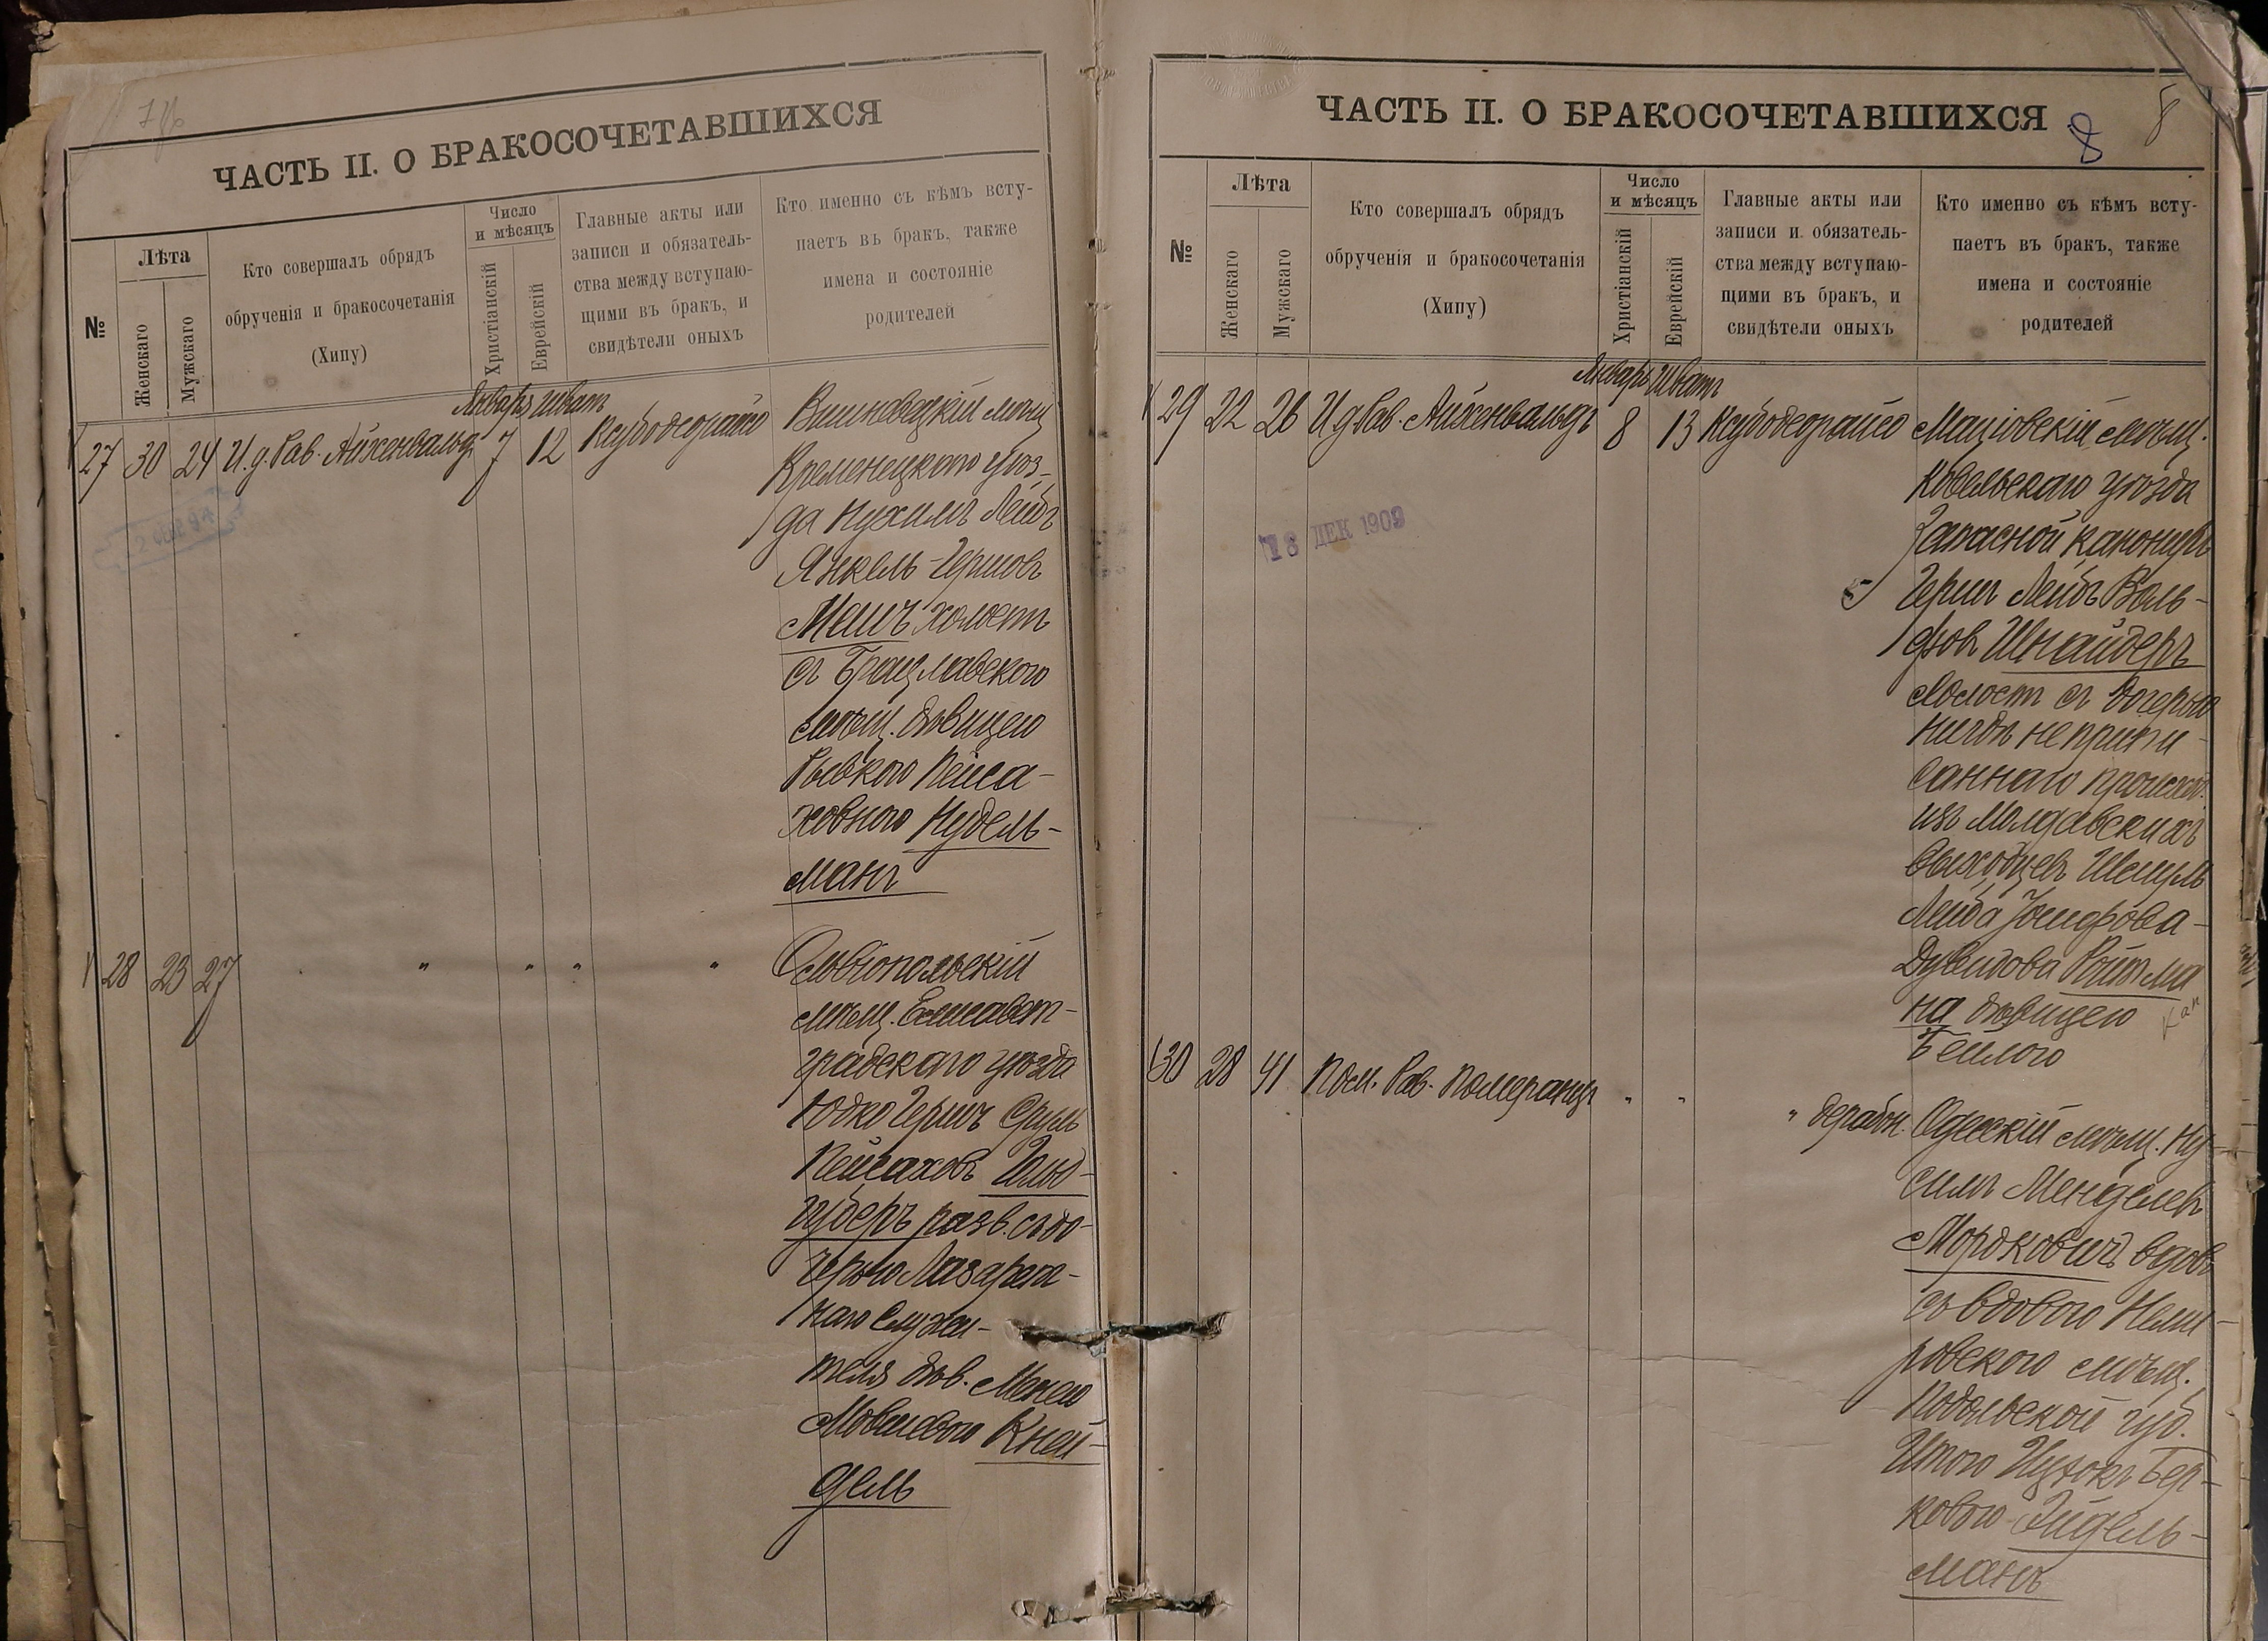 ЧАСТЬ II. О БРАКОСОЧЕТАВШИХСЯ
№
Лѣта
Женскаго
Мужскаго
Кто совершалъ обрядъ
обрученія и бракосочетанія
(Хипу)
Число
и мѣсяцъ
Христіанскій
Еврейскій
Главные акты или
записи и обязатель-
ства между вступаю-
щими въ бракъ, и
свидѣтели оныхъ
Кто именно съ кѣмъ всту-
паетъ въ бракъ, также
имена и состояніе
родителей
Январь Шватъ
27 30 24 И. д. Рав. Айхенвальд 7 12 Ксубодеорайсо Вишновецкій мѣщ
Кременецкаго уѣз-
да Нухимъ Лейбъ
Янкель-Гершовъ
Мешъ холостъ
съ Брацлавскою
мѣщ. дѣвицею
Рывкою Пейса-
ховною Нудель-
манъ
28 23 27 " " " " Ольвіопольскій
мѣщ. Елисавет-
градскаго уѣзда
Юдко Гершъ Сруль
Пейсаховъ Гольд-
губеръ разв. съ до-
черью Лазарет-
наго служи-
теля дѣв. Менею
Мовшевою Кней-
дель
ЧАСТЬ II. О БРАКОСОЧЕТАВШИХСЯ
8 8
№
Лѣта
Женскаго
Мужскаго
Кто совершалъ обрядъ
обрученія и бракосочетанія
(Хипу)
Число
и мѣсяцъ
Христіанскій
Еврейскій
Главные акты или
записи и обязатель-
ства между вступаю-
щими въ бракъ, и
свидѣтели оныхъ
Кто именно съ кѣмъ всту-
паетъ въ бракъ, также
имена и состояніе
родителей
Январь Шватъ
29 22 26 И д Рав. Айхенвальдъ 8 13 Ксубодеорайсо Маціовскій мѣщ.
Ковельскаго уѣзда
18 ДЕК 1909
Запасной канониръ
Гершъ Лейбъ Воль-
фовъ Шнайдеръ
холостъ съ дочерью
нигдѣ неприпи-
саннаго происход.
изъ Молдавскихъ
выходцевъ Шмуль
Лейба
Дувидова Ройтма
на дѣвицею
Бейлою
30 28 41 Пом. Рав. Померанцъ " " " дерабон. Одесскій мѣщ. Ну-
симъ Менделевъ
Мордковичъ вдовъ
съ вдовою Неми-
ровскою мѣщ.
Подольской губ.
Итою Ицковъ Бер-
ковою Эйдель-
манъ